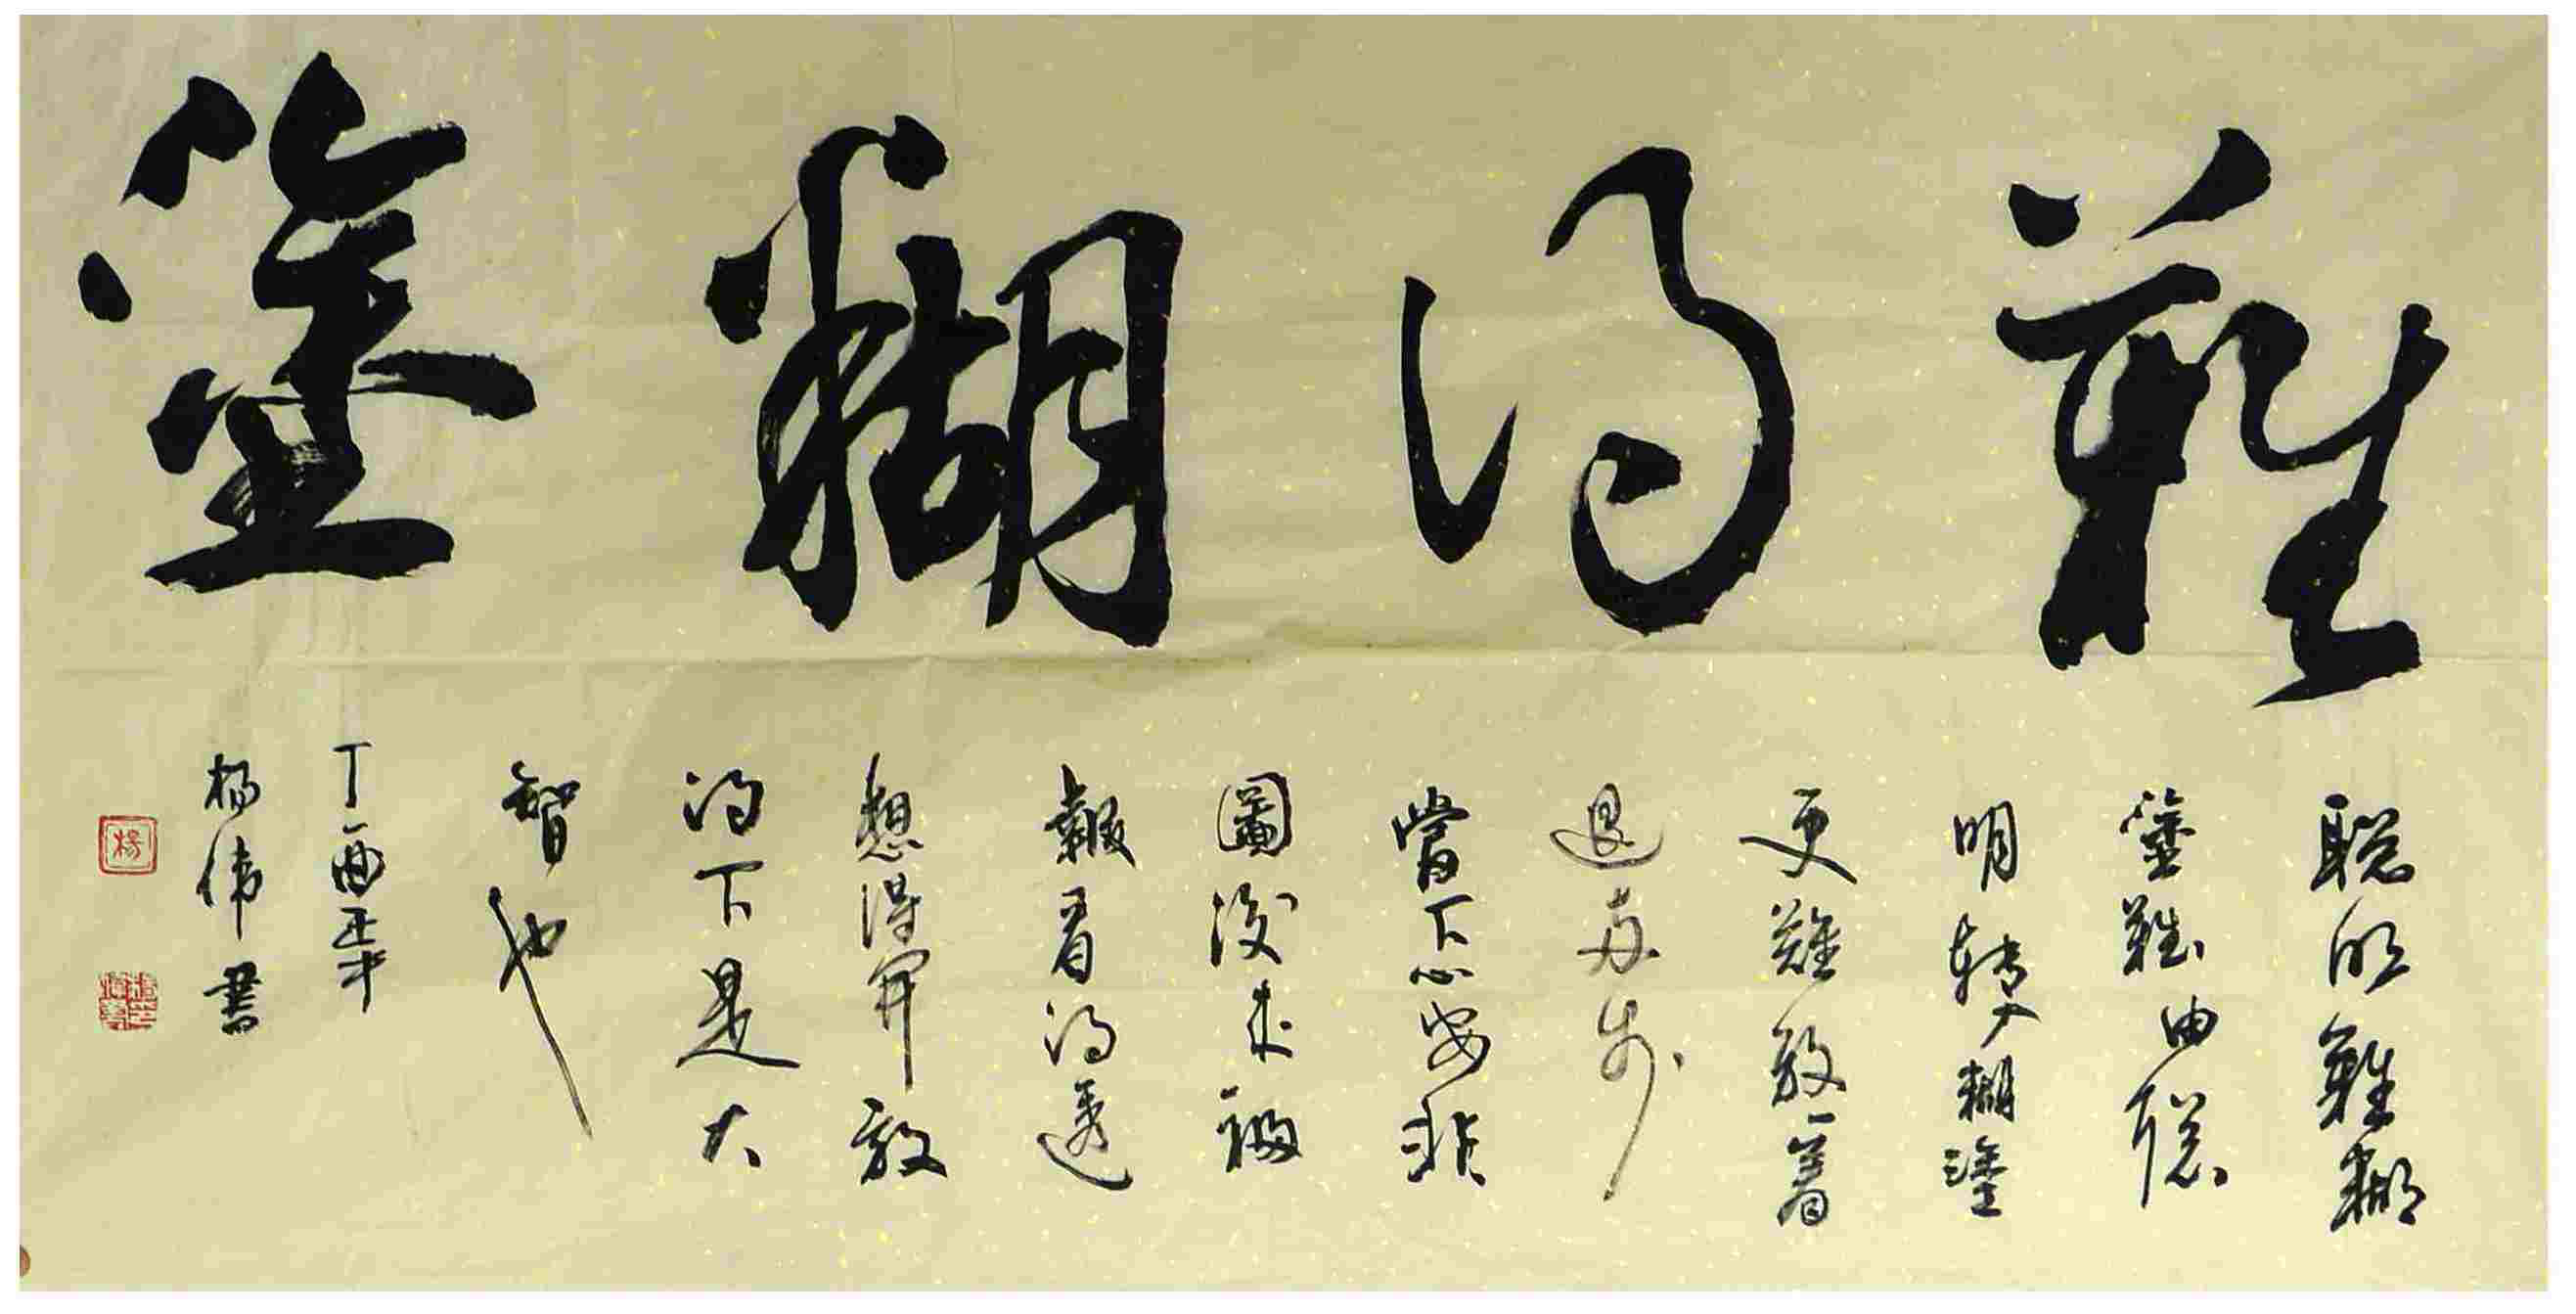 難得糊塗
聰明難糊
塗難由聰
明轉入糊塗
更難放一著
退一步
當下心安非
圖後来福
報看得透
想得開放
得下是大
智也
丁酉正年
楊偉書
楊